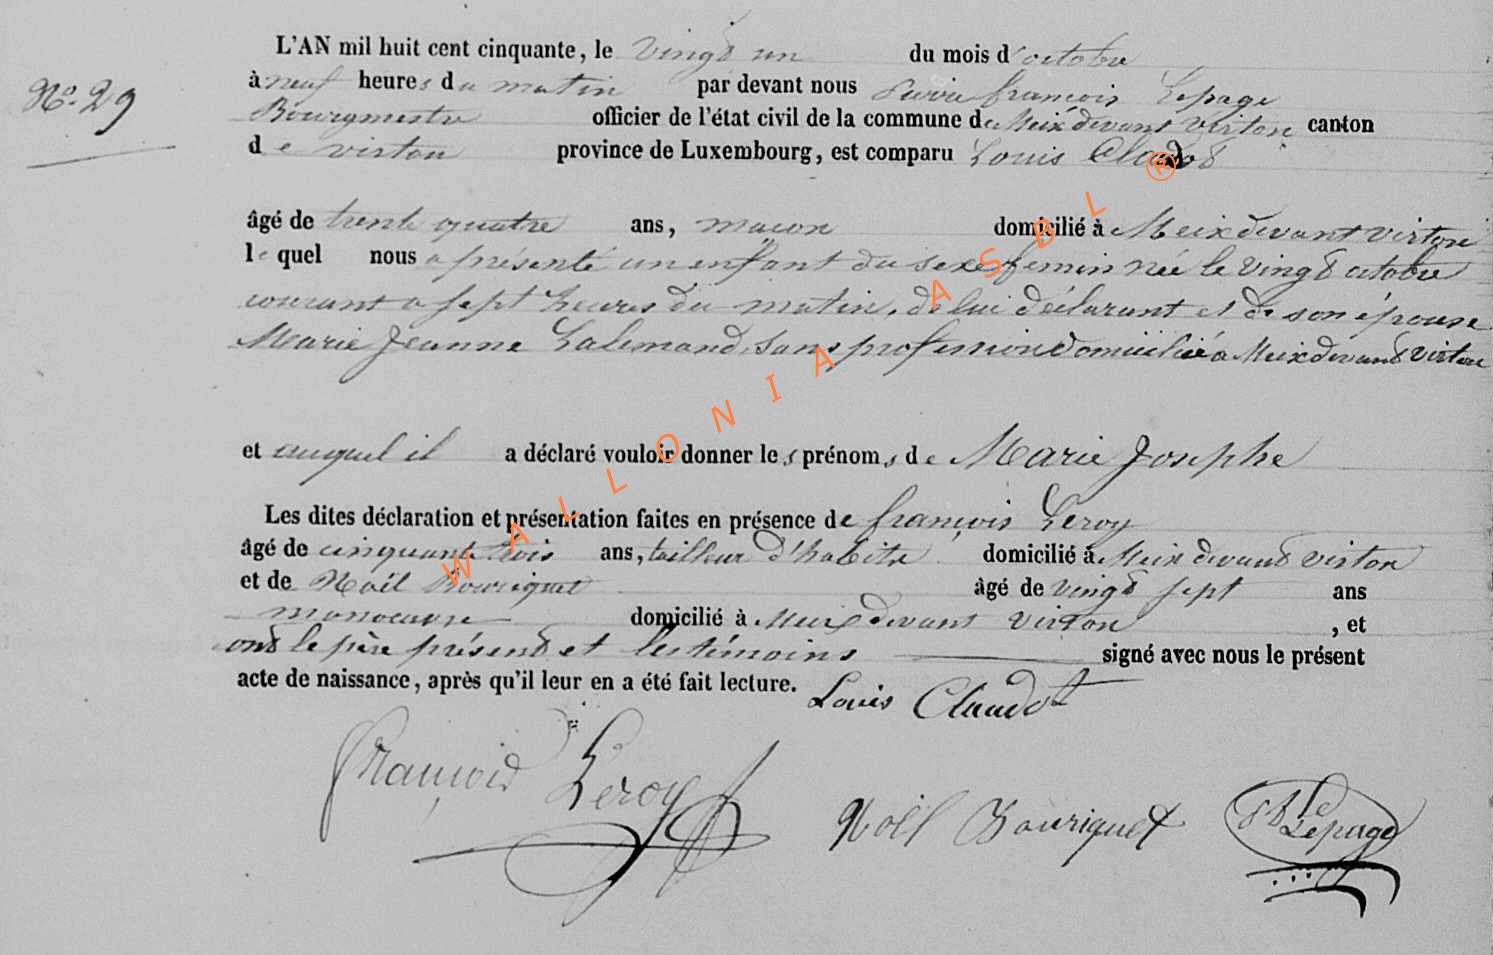 L'AN mil huit cent cinquante, le vingt un du mois d'octobre
No. 29
à neuf heures du matin par devant nous Pierre françois Lepage
Bourgmestre officier de l'état civil de la commune de Meix devant Virton canton
de virton province de Luxembourg, est comparu Louis Claudot
âgé de trente quatre ans, maçon domicilié à Meix devant virton
lequel nous a présenté un enfant du sexe femin née le vingt octobre
courant a sept heures du matin, de lui déclarant et de son épouse
Marie Jeanne Lalemand, sans profession domiciliée a Meix devant virton
et auquel il a déclaré vouloir donner les prénoms de Marie Josephe
Les dites déclaration et présentation faites en présence de françois Leroy
âgé de cinquante trois ans, tailleur d'habits domicilié à Meix devant virton
et de Noël Bouriquet âgé de vingt sept ans
manoeuvre domicilié à Meix devant virton, et
ont le père présent et les témoins signé avec nous le présent
acte de naissance, après qu'il leur en a été fait lecture. Louis Claudot
François Leroy
Noël Bouriquet
Lepage
WALLONIA ASBL ®